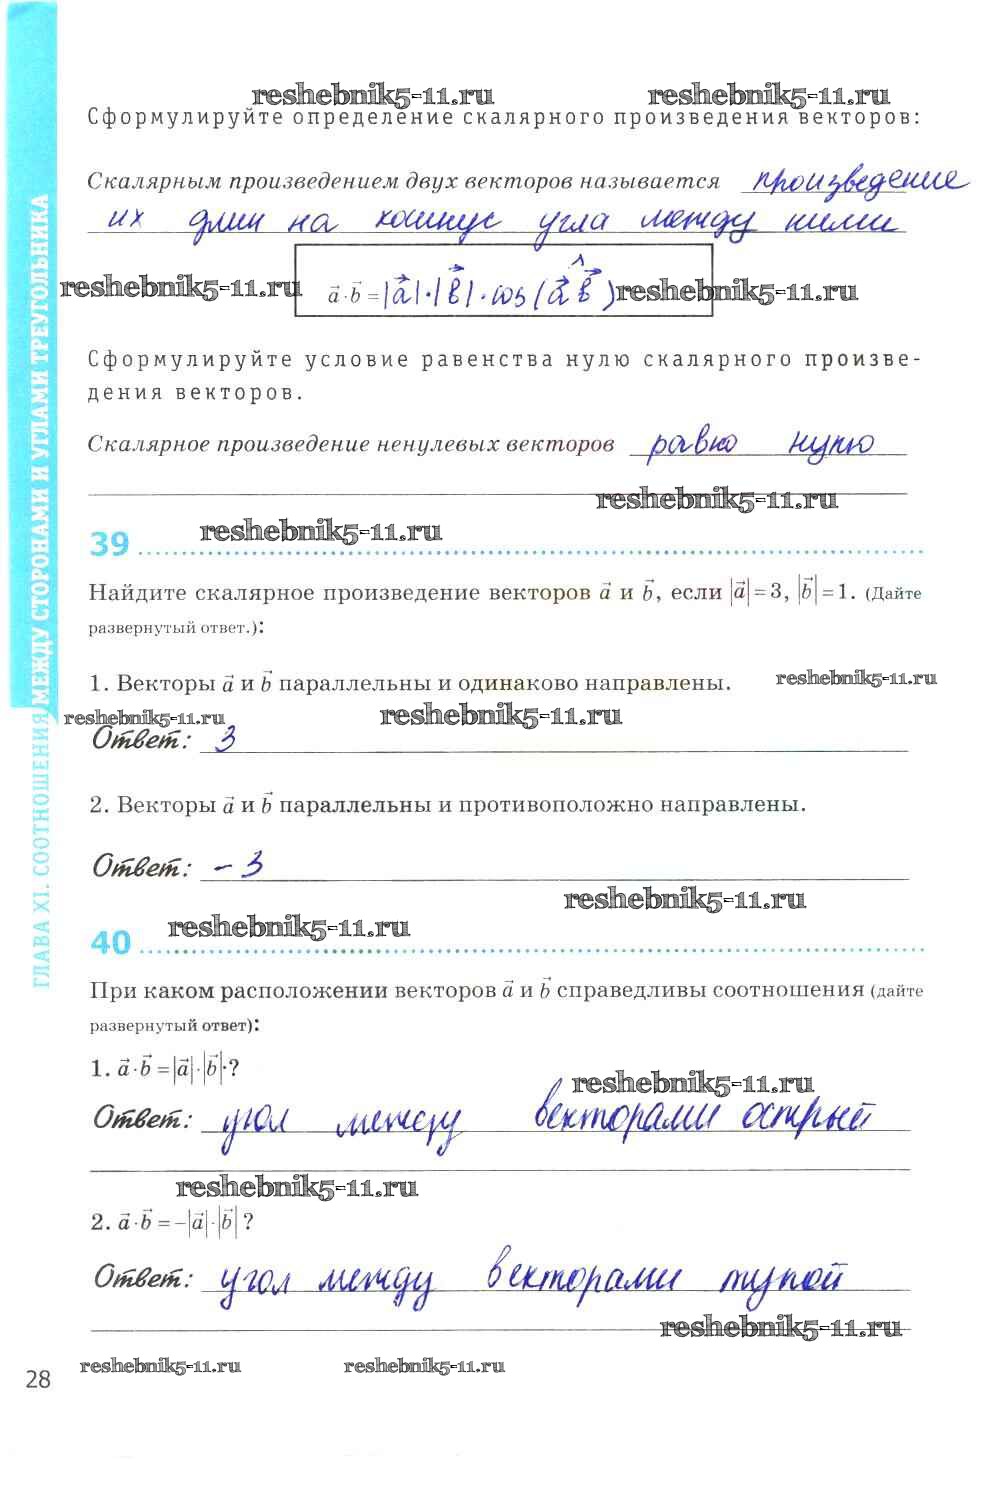 reshebnik5-11.ru reshebnik5-11.ru
Сформулируйте определение скалярного произведения векторов:
Скалярным произведением двух векторов называется произведение
их длин на косинус угла между ними
reshebnik5-11.ru a⃗·b⃗=|a⃗|·|b⃗|·cos(a⃗^b⃗) reshebnik5-11.ru
Сформулируйте условие равенства нулю скалярного произве-
дения векторов.
Скалярное произведение ненулевых векторов равно нулю
reshebnik5-11.ru
reshebnik5-11.ru
39
Найдите скалярное произведение векторов a⃗ и b⃗, если |a⃗|=3, |b⃗|=1. (Дайте
развернутый ответ.):
1. Векторы a⃗ и b⃗ параллельны и одинаково направлены. reshebnik5-11.ru
reshebnik5-11.ru reshebnik5-11.ru
Ответ: 3
2. Векторы a⃗ и b⃗ параллельны и противоположно направлены.
Ответ: -3
reshebnik5-11.ru
reshebnik5-11.ru
40
При каком расположении векторов a⃗ и b⃗ справедливы соотношения (дайте
развернутый ответ):
1. a⃗·b⃗=|a⃗|·|b⃗|·?
reshebnik5-11.ru
Ответ: угол между векторами острый
reshebnik5-11.ru
2. a⃗·b⃗=-|a⃗|·|b⃗|?
Ответ: угол между векторами тупой
reshebnik5-11.ru
reshebnik5-11.ru reshebnik5-11.ru
28
ГЛАВА XI. СООТНОШЕНИЯ МЕЖДУ СТОРОНАМИ И УГЛАМИ ТРЕУГОЛЬНИКА